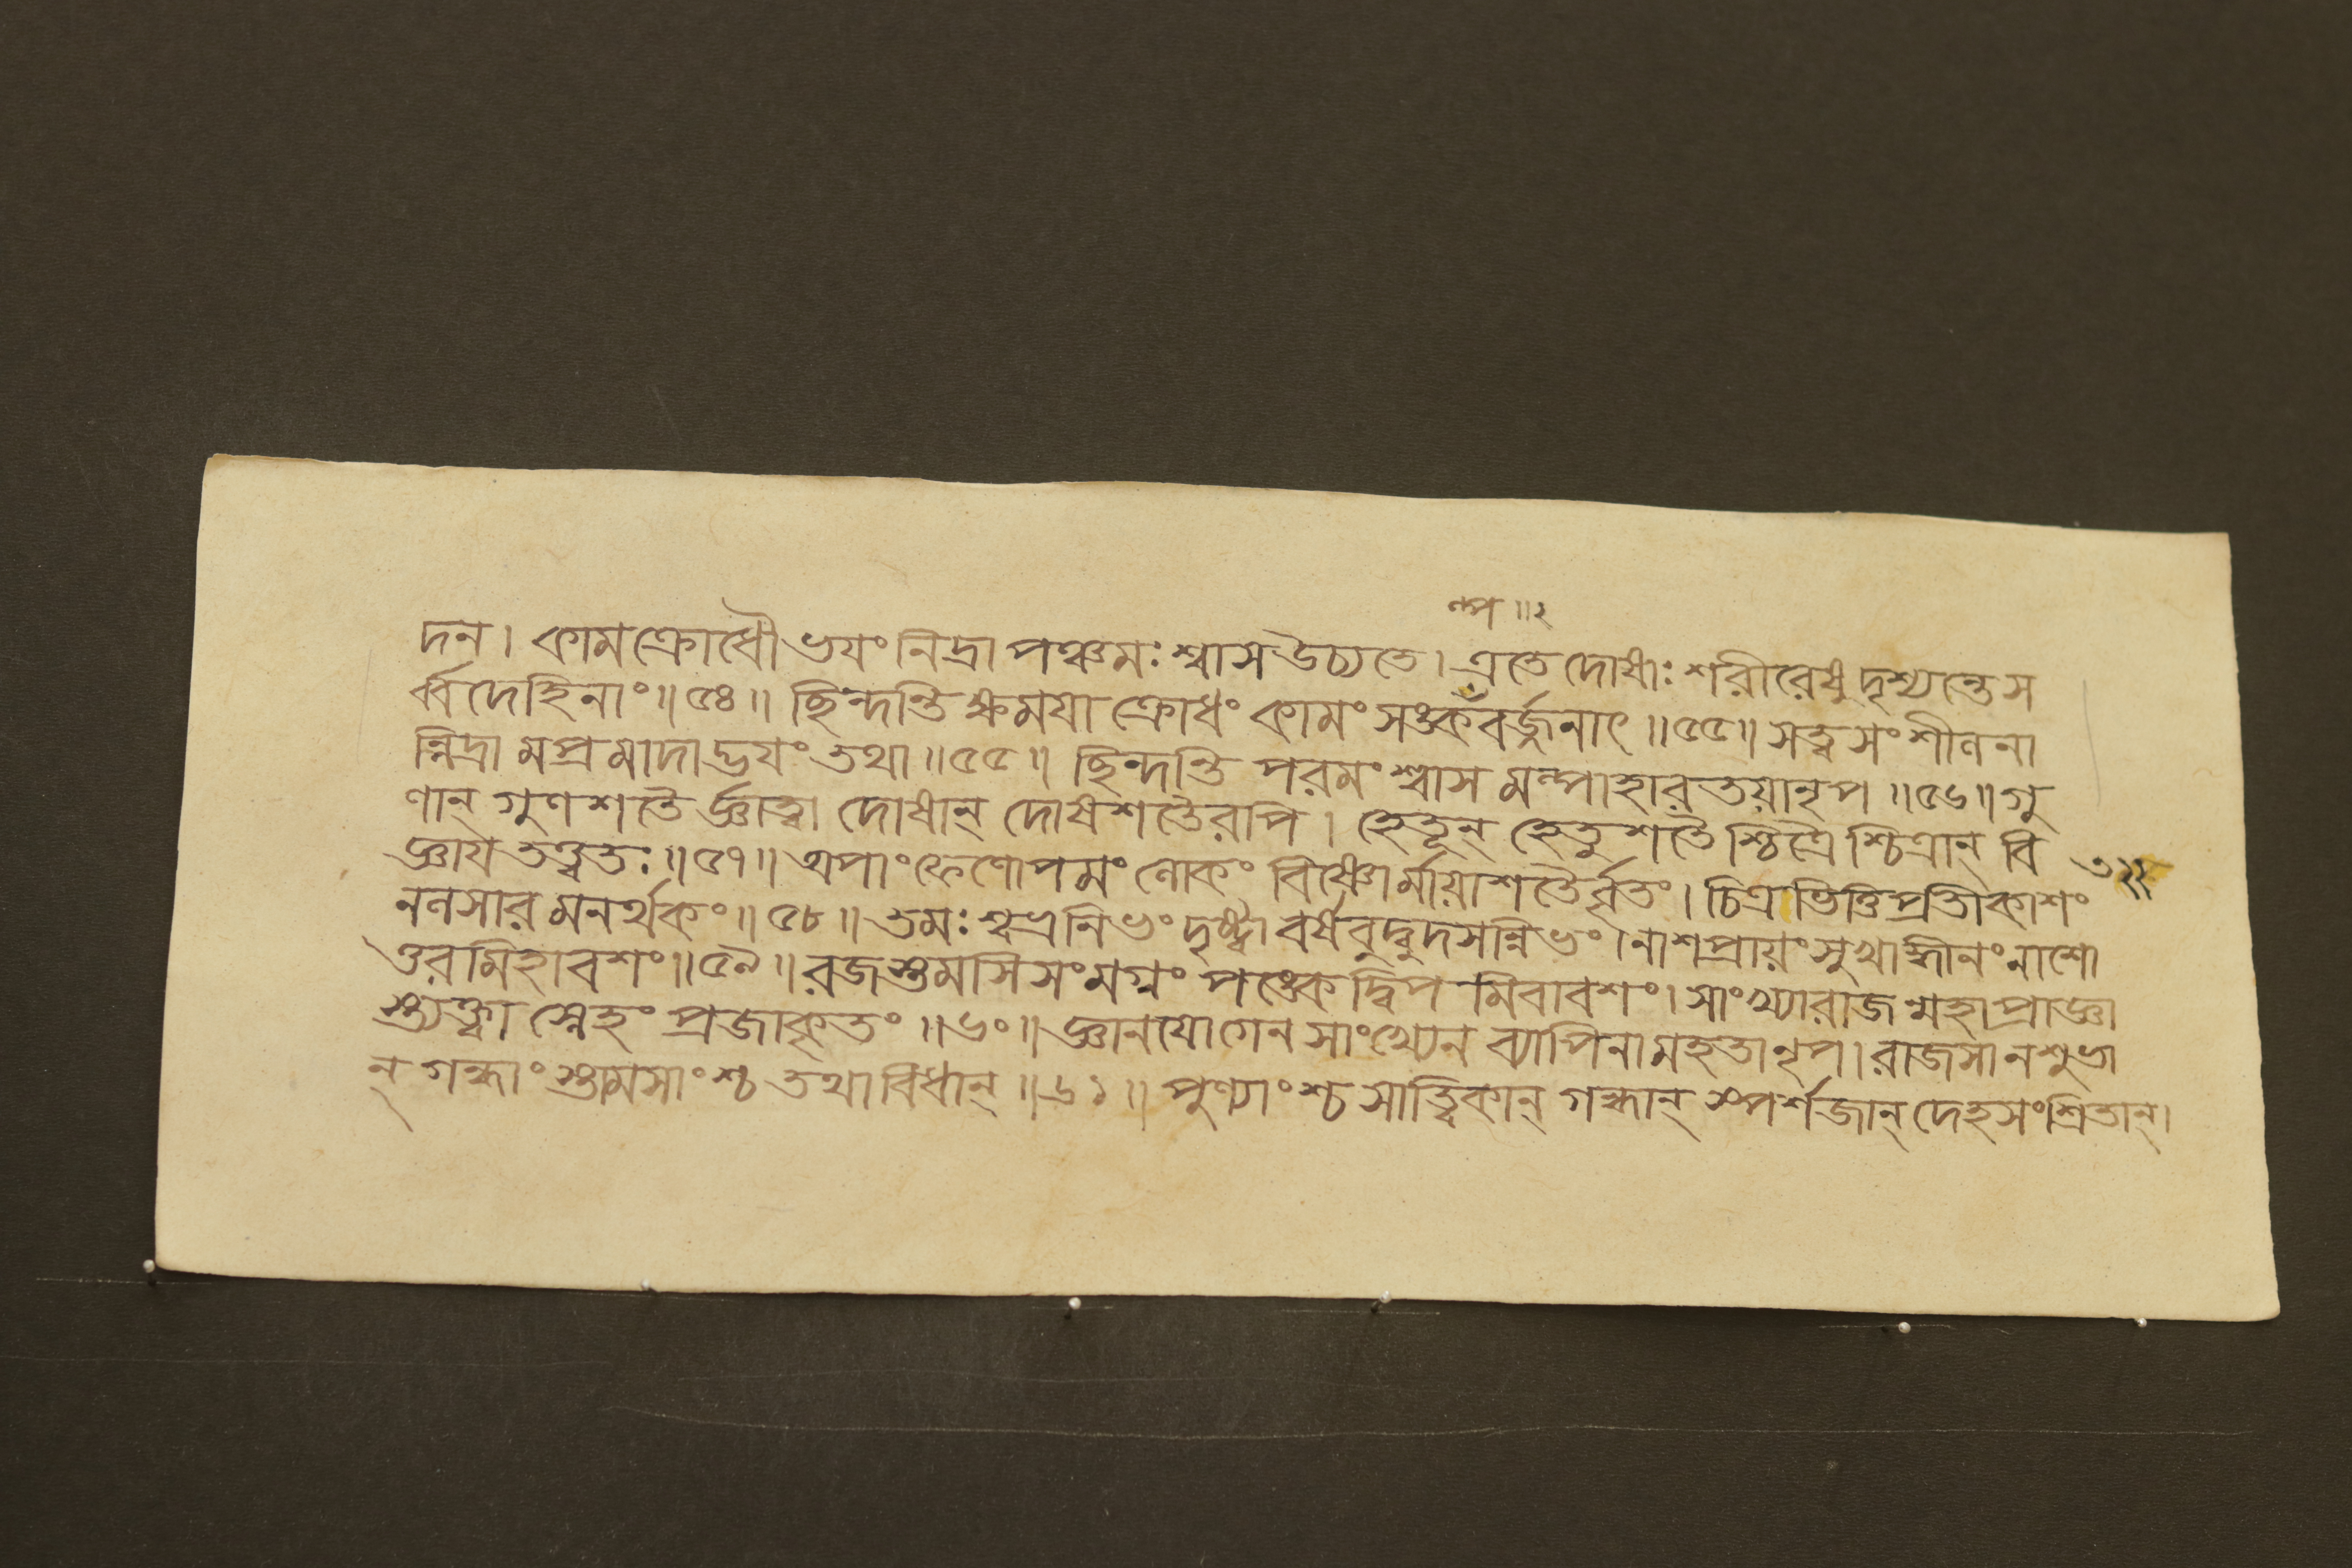 ল্প॥২
দন। কামক্রোধৌ ভযং নিদ্রা পঞ্চমঃ শ্বাস উচ্যতে। এতে দোষাঃ শরীরেষু দৃশ্যন্তে স
র্ব্বদেহিনাং॥৫৪॥ ছিন্দন্তি ক্ষময়া ক্রোধং কামং সঙ্কঁবর্জ্জনাৎ॥৫৫॥ সত্ত্বসংশীলনা
ন্নিদ্রামপ্রমাদাদ্ভযং তথা॥৫৫॥ ছিন্দন্তি পরমং শ্বাসমল্পাহারতয়া নৃপ॥৫৬॥ গু
ণান্ গুণশতৈর্জ্ঞাত্বা দোষান্ দোষশতৈরপি। হেতূন্ হেতুশতৈশ্চিত্রৈশ্চিত্রান্ বি
জ্ঞায তত্ত্বতঃ॥৫৭॥ অপাং ফেণোপমং লোকং বিষ্ণোর্মায়াশতৈর্বৃতং। চিত্রভিত্তিপ্রতীকাশং
নলসারমনর্থকং॥৫৮॥ তমঃশ্বভ্রনিভং দৃষ্ট্বা বর্ষবুদ্বুদসন্নিভং। নাশপ্রায়ং সুখাদ্ধীনং নাশো
ত্তরমিহাবশং॥৫৯॥ রজস্তমসি সংমগ্নং পঙ্কে দ্বিপমিবাবশং। সাংখ্যা রাজন্মহাপ্রাজ্ঞা
স্ত্যক্ত্বা স্নেহং প্রজাকৃতং॥৬০॥ জ্ঞানযোগেন সাংখ্যেন ব্যাপিনা মহতা নৃপ। রাজসানশুভা
ন্ গন্ধাংস্তামসাংশ্চ তথাবিধান্॥৬১॥ পুণ্যাংশ্চ সাত্ত্বিকান্ গন্ধান্ স্পর্শজান্ দেহসংশ্রিতান্।